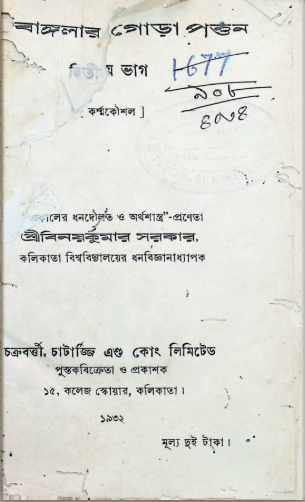 বাঙ্গলার গোড়া পত্তন
দ্বিতীয় ভাগ
1677
৯০৮
কর্ম্মকৌশল ]
ধনদৌলত ও অর্থশাস্ত্র”-প্রণেতা
শ্রীবিনয়কুমার সরকার,
কলিকাতা বিশ্ববিদ্যালয়ের ধনবিজ্ঞানাধ্যাপক
চক্রবর্ত্তী, চাটার্জ্জি এণ্ড কোং লিমিটেড
পুস্তকবিক্রেতা ও প্রকাশক
১৫, কলেজ স্কোয়ার, কলিকাতা।
১৯৩২
মূল্য দুই টাকা।